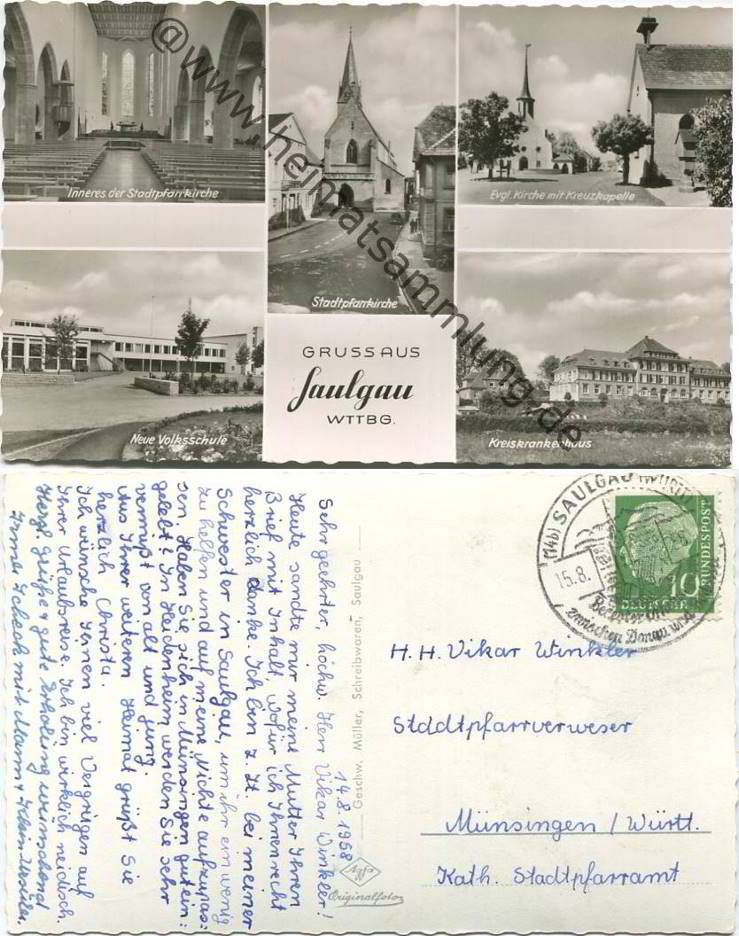 Inneres der Stadtpfarrkirche
Stadtpfarrkirche
Evgl. Kirche mit Kreuzkapelle
Neue Volksschule
GRUSS AUS
Saulgau
WTTBG.
Kreiskrankenhaus
@www.heimatsammlung.de
14.8.1958
Sehr geehrter, hochw. Herr Vikar Winkler!
Heute sandte mir meine Mutter Ihren
Brief mit Inhalt, wofür ich Ihnen recht
herzlich danke. Ich bin z. Zt. bei meiner
Schwester in Saulgau, um ihr ein wenig
zu helfen und auf meine Nichte aufzupas=
sen. Haben Sie sich in Münsingen gut ein=
gelebt? In Heidenheim werden Sie sehr
vermisst von alt und jung.
Aus Ihrer weiteren Heimat grüßt Sie
herzlich Christa.
Ich wünsche Ihnen viel Vergnügen auf
Ihrer Urlaubsreise. Ich bin wirklich neidisch.
Herzl. Grüße & gute Erholung wünschend
mit Mann &
Geschw. Müller, Schreibwaren, Saulgau
Agfa
Originalfoto
(14b) SAULGAU (WÜRTT
15.8.
zwischen Donau und
10
DEUTSCHE
BUNDESPOST
H. H. Vikar Winkler
Stadtpfarrverweser
Münsingen / Württ.
Kath. Stadtpfarramt